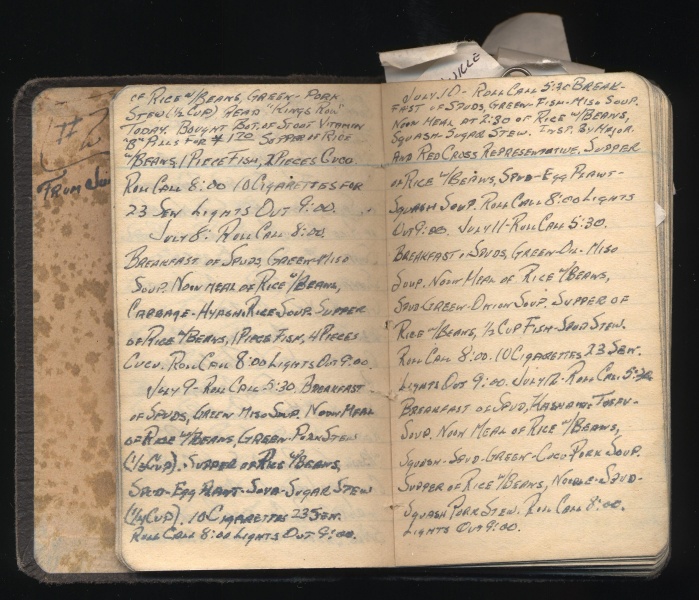 #2
From Jun
ville
of Rice w/Beans, Green-Pork
Stew (½ Cup) Read "Kings Row"
Today. Bought Bot. of Stout Vitamin
"B" Pills for ¥1.70 Supper of Rice
w/Beans, 1 Piece Fish, 2 Pieces Cuco.
Roll Call 8:00 10 Cigarettes for
23 Sen Lights Out 9:00.
July 8: Roll Call 8:00
Breakfast of Spuds, Green-Miso
Soup. Noon Meal of Rice w/Beans,
Cabbage-Hyashi Rice Soup. Supper
of Rice w/Beans, 1 Piece Fish, 4 Pieces
Cucu. Roll Call 8:00 Lights Out 9:00.
July 9-Roll Call 5:30 Breakfast
of Spuds, Green Miso Soup. Noon Meal
of Rice w/Beans, Green-Pork Stew
(½ Cup). Supper of Rice w/Beans,
Spud-Egg Plant-Soya-Sugar Stew
(¼ Cup). 10 Cigarettes 23 Sen.
Roll Call 8:00 Lights Out 9:00.
July 10-Roll Call 5:30 Break-
fast of Spuds, Green-Fish-Miso Soup.
Noon Meal at 2:30 of Rice w/Beans,
Squash-Sugar Stew. Insp. By Major
and Red Cross Representative. Supper
of Rice w/Beans, Spud-Egg Plant-
Squash Soup. Roll Call 8:00 Lights
Out 9:00. July 11-Roll Call 5:30.
Breakfast of Spuds, Green-Dil-Miso
Soup. Noon Meal of Rice w/Beans,
Spud-Green-Onion Soup. Supper of
Rice w/Beans, ½ Cup Fish-Spud Stew.
Roll Call 8:00. 10 Cigarettes 23 Sen.
Lights Out 9:00. July 12-Roll Call 5:30
Breakfast of Spud, Tofu-
Soup. Noon Meal of Rice w/Beans,
Squash-Spud-Green-Cucu-Pork Soup.
Supper of Rice w/Beans, Noodle-Spud-
Squash Pork Stew. Roll Call 8:00.
Lights Out 9:00.